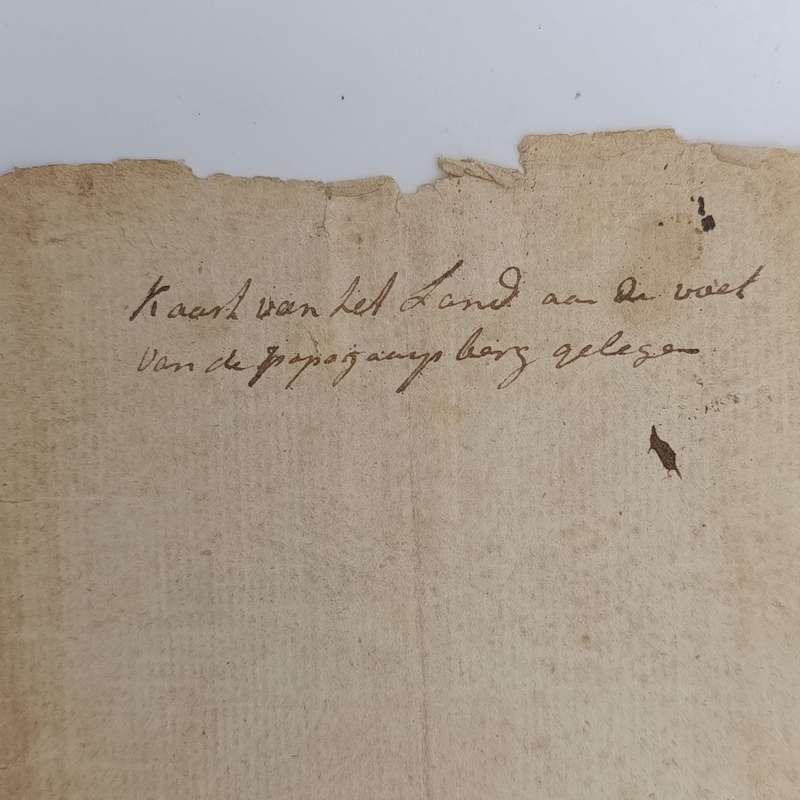 Kaart van het Land aan de voet
van de papagaays berg gelegen